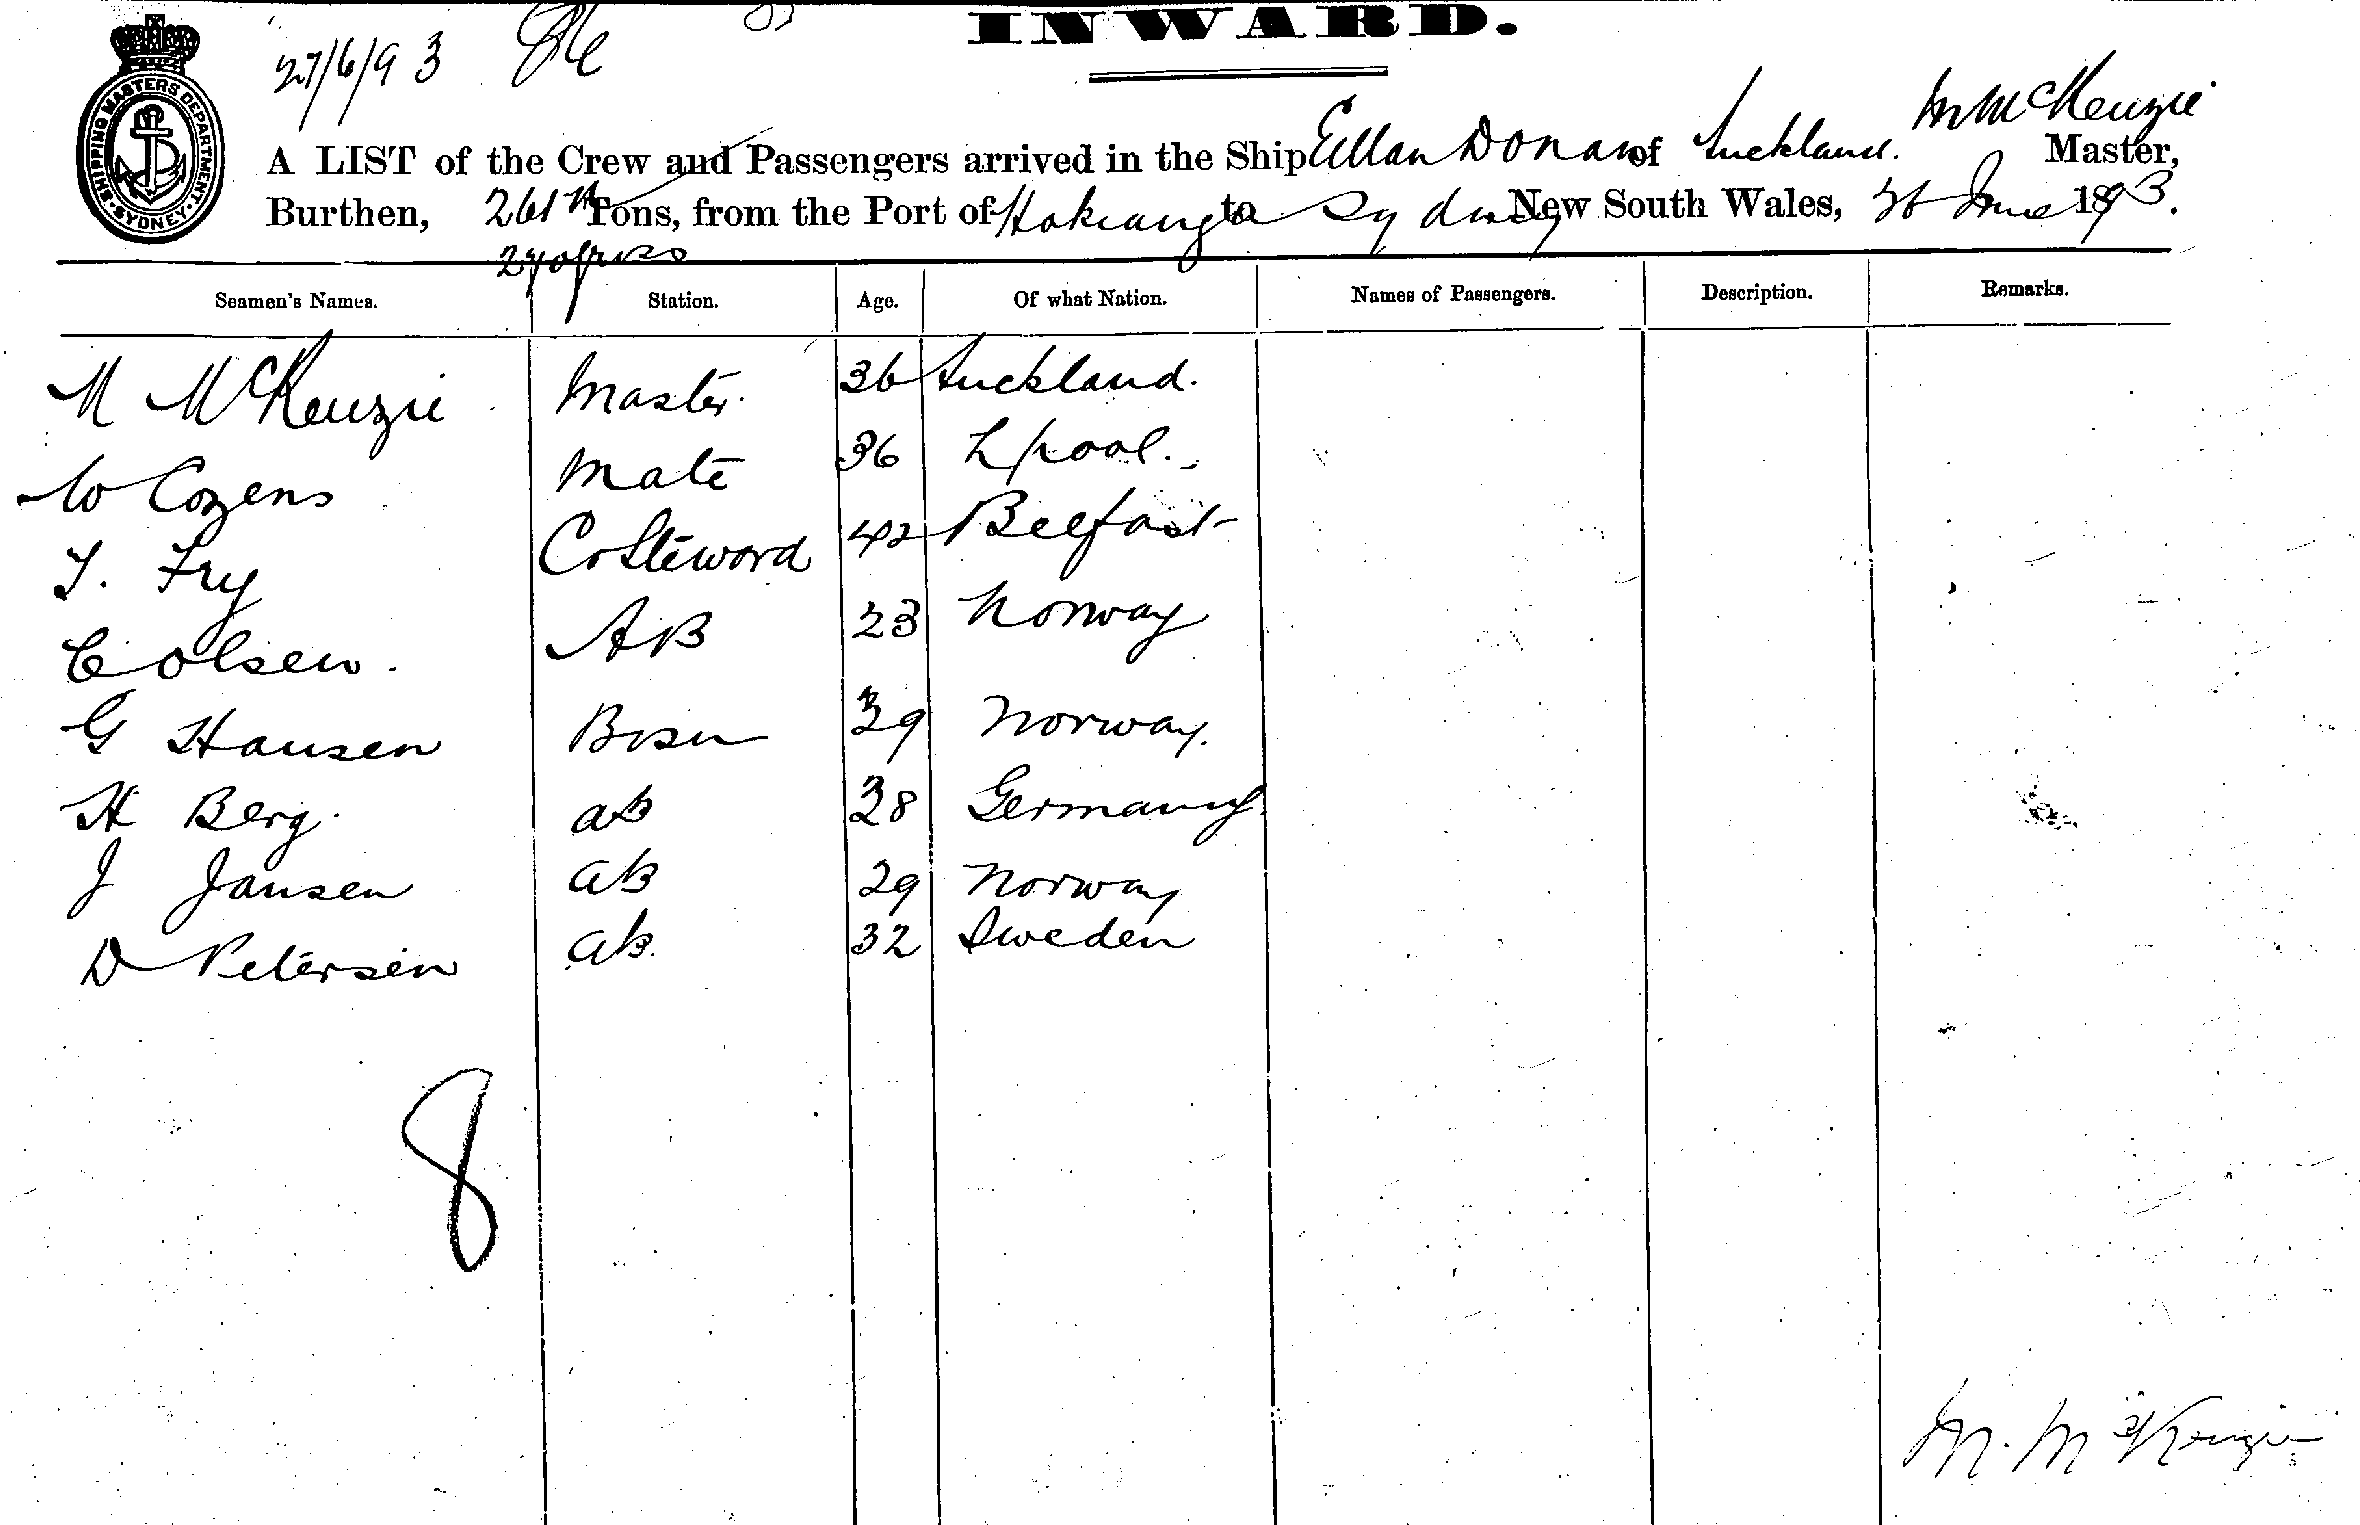 INWARD.
27/6/93
SHIPPING MASTERS DEPARTMENT. SYDNEY.
A LIST of the Crew and Passengers arrived in the Ship Eillan Donan of Auckland. M McKenzie Master,
Burthen, 261 Tons, from the Port of Hokianga to Sydney New South Wales, 26 June 1893.
Seamen's Names. Station. Age. Of what Nation. Names of Passengers. Description. Remarks.
M McKenzie Master. 36 Auckland.
W Cozens Mate 36 Lpool.
T. Fry Co Steword 42 Belfast
C Olsen. AB 23 Norway
G Hansen Bosn 39 Norway.
H Berg. ab 38 Germany
J Jansen ab 29 Norway
D Petersen ab. 32 Sweden
8
M. McKenzie